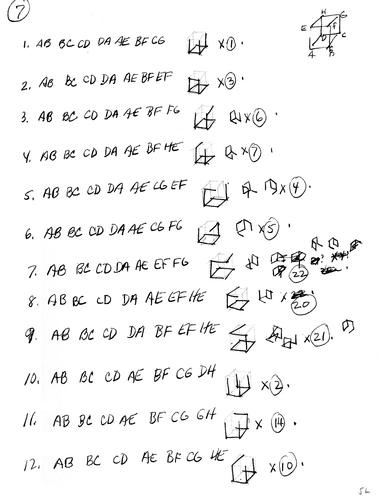 7
H G
E F
D C
A B
1. AB BC CD DA AE BF CG ×1.
2. AB BC CD DA AE BF EF ×3.
3. AB BC CD DA AE BF FG ×6.
4. AB BC CD DA AE BF HE ×7.
5. AB BC CD DA AE CG EF ×4.
6. AB BC CD DA AE CG FG ×5.
7. AB BC CD DA AE EF FG 22.
8. AB BC CD DA AE EF HE × 20
9. AB BC CD DA BF EF HE ×21.
10. AB BC CD AE BF CG DH ×2.
11. AB BC CD AE BF CG GH ×14.
12. AB BC CD AE BF CG HE ×10.
SL